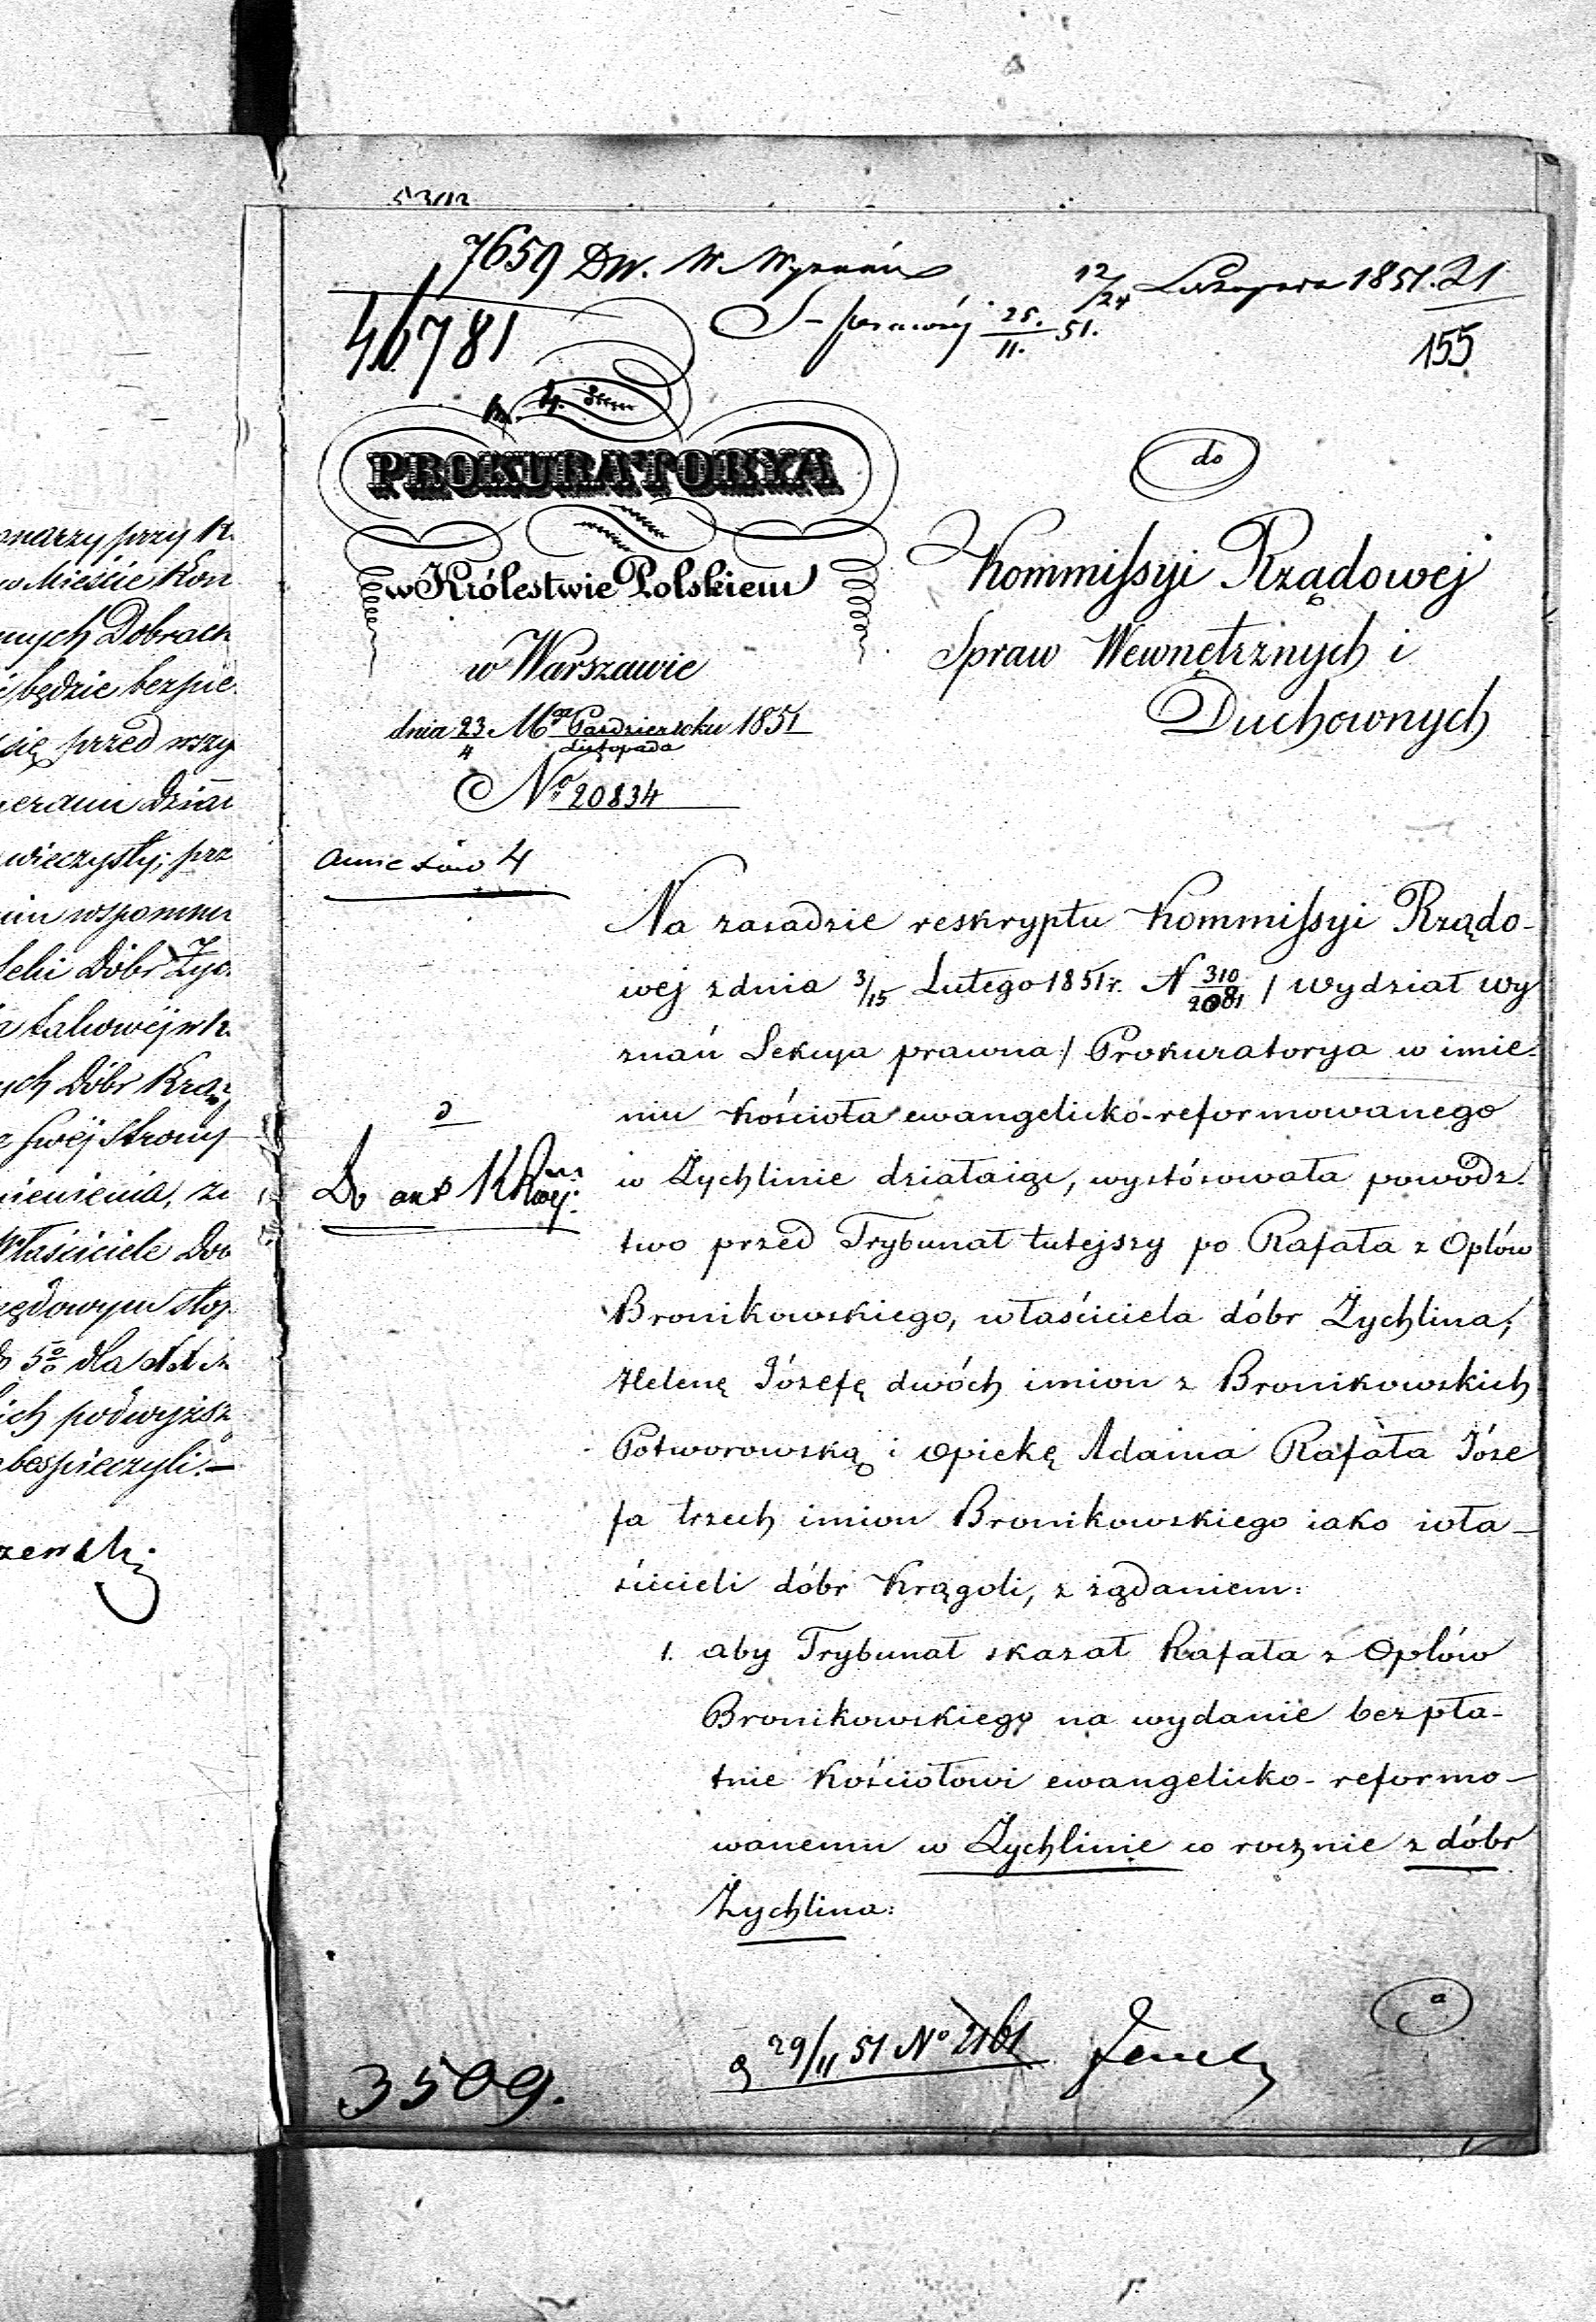 7659 DW. W. Wyznań
12/24 Listopada 1851. 21
46781
S. prawnéj 25./11. 51.
155
PROKURATORYA
w Królestwie Polskiem
w Warszawie
dnia 23/4 Mca Październ/Listopada roku 1851
No 20834
do
Kommissyi Rządowej
Spraw Wewnętrznych i
Duchownych
annexów 4
Na zasadzie reskryptu Kommissyi Rządo-
wej z dnia 3/15 Lutego 1851 r. N 310/2081 / wydział wy
znań Sekcya prawna / Prokuratorya w imie-
niu Kościoła ewangelicko-reformowanego
w Żychlinie działaiąc, wystósowała powódz-
two przed Trybunał tutejszy po Rafała z Opłów
Bronikowskiego, właściciela dóbr Żychlina,
Helenę Józefę dwóch imion z Bronikowskich
Potworowską i opiekę Adama Rafała Józe
fa trzech imion Bronikowskiego iako wła-
ścicieli dóbr Krągoli, z żądaniem:
1. aby Trybunał skazał Rafała z Opłów
Bronikowskiego na wydanie bezpła-
tnie Kościołowi ewangelicko-reformo-
wanemu w Żychlinie co rocznie z dóbr
Żychlina:
Do akt
29/11 51 No 2161
3509.
a
onarzy przy K.
w Mieście Kon
nych Dobrach
będzie bezpie
się przed wszy
wieczysty; prz
wspomn
Dóbr Życ
ych Dóbr Krąg
swéj Strony
mienienia, że
Właściciele Dob
zędowym stop
5% dla
ich podwyższ
bespieczyli.—